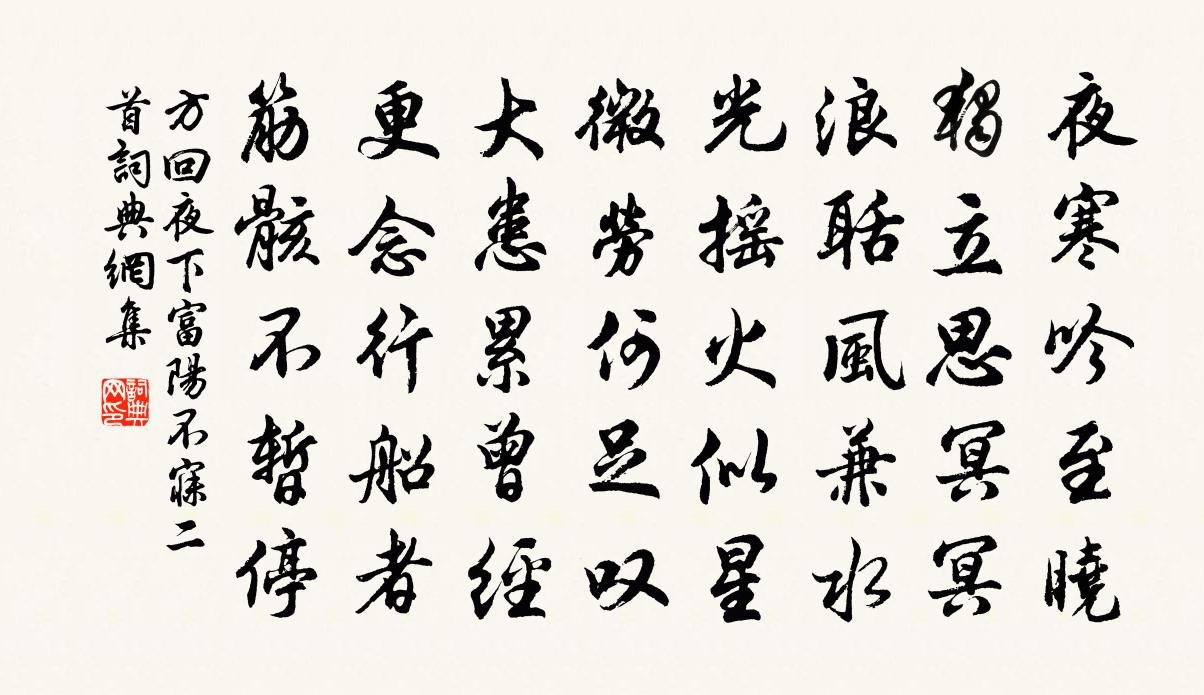 夜寒吟至曉
獨立思冥冥
浪聒風兼水
光摇火似星
微勞何足叹
大患累曾經
更念行船者
筋骸不暫停
方回夜下富陽不寐二
首詞典網集
詞典网印